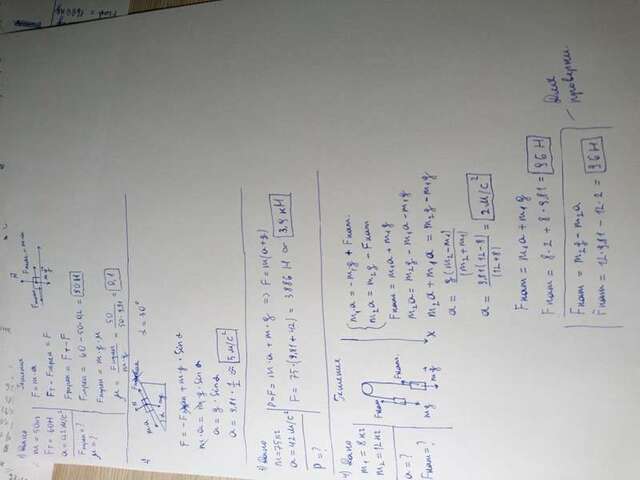 1) Дано
m = 50кг
Fт = 60Н
a = 0,2 м/с²
Fтрен = ?
μ = ?
Решение
F = m·a
Fт - Fтрен = F
Fтрен = Fт - F
Fтрен = 60 - 50·0,2 = 50 Н
Fтрен = m·g·μ
μ = Fтрен / m·g = 50 / 50·9,81 = 0,1
N
mg
α = 30°
m·a
N
α
mg
F = -Fтрен + m·g·sin α
m·a = m·g·sin α
a = g·sin α
a = 9,81·1/2 ≈ 5 м/с²
3) Дано
m = 75кг
a = 42 м/с²
P = ?
P = F = m·a + m·g => F = m(a+g)
F = 75·(9,81+42) = 3886 Н ≈ 3,9 кН
4) Дано
m₁ = 8 кг
m₂ = 12 кг
a = ?
Fнат = ?
Решение
Fнат
Fнат
mg
mg
x
m₁a = -m₁g + Fнат
m₂a = m₂g - Fнат
Fнат = m₁a + m₁g
m₂a = m₂g - m₁a - m₁g
m₂a + m₁a = m₂g - m₁g
a = g(m₂ - m₁) / (m₂ + m₁)
a = 9,81(12-8) / (12+8) = 2 м/с²
Fнат = m₁a + m₁g
Fнат = 8·2 + 8·9,81 = 96 Н
Fнат = m₂g - m₂a
Fнат = 12·9,81 - 12·2 = 96 Н
Для
проверки